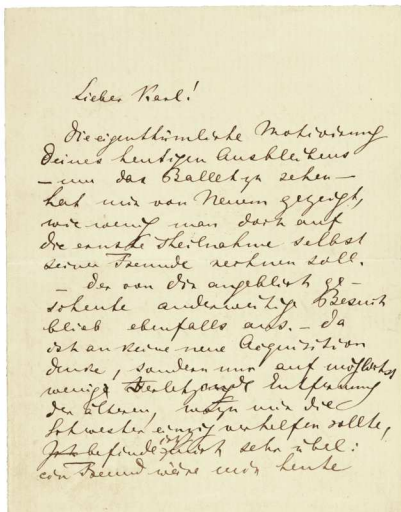 Lieber Karl!
Die eigenthümliche Motivirung
Deines heutigen Ausbleibens
— um das Ballet zu sehen —
hat mir von Neuem gezeigt,
wie wenig man doch auf
die ernste Theilnahme selbst
seiner Freunde rechnen soll.
— Der von dir angeblich ge-
scheute anderweitige Besuch
blieb ebenfalls aus. — Da
ich an keine neue Acquisition
denke, sondern nur auf möglichst
wenig verletzende Entfernung
der älteren, wozu mir die
Schwester einzig verhelfen sollte,
befinde ich mich sehr übel:
ein Freund wäre mir heute